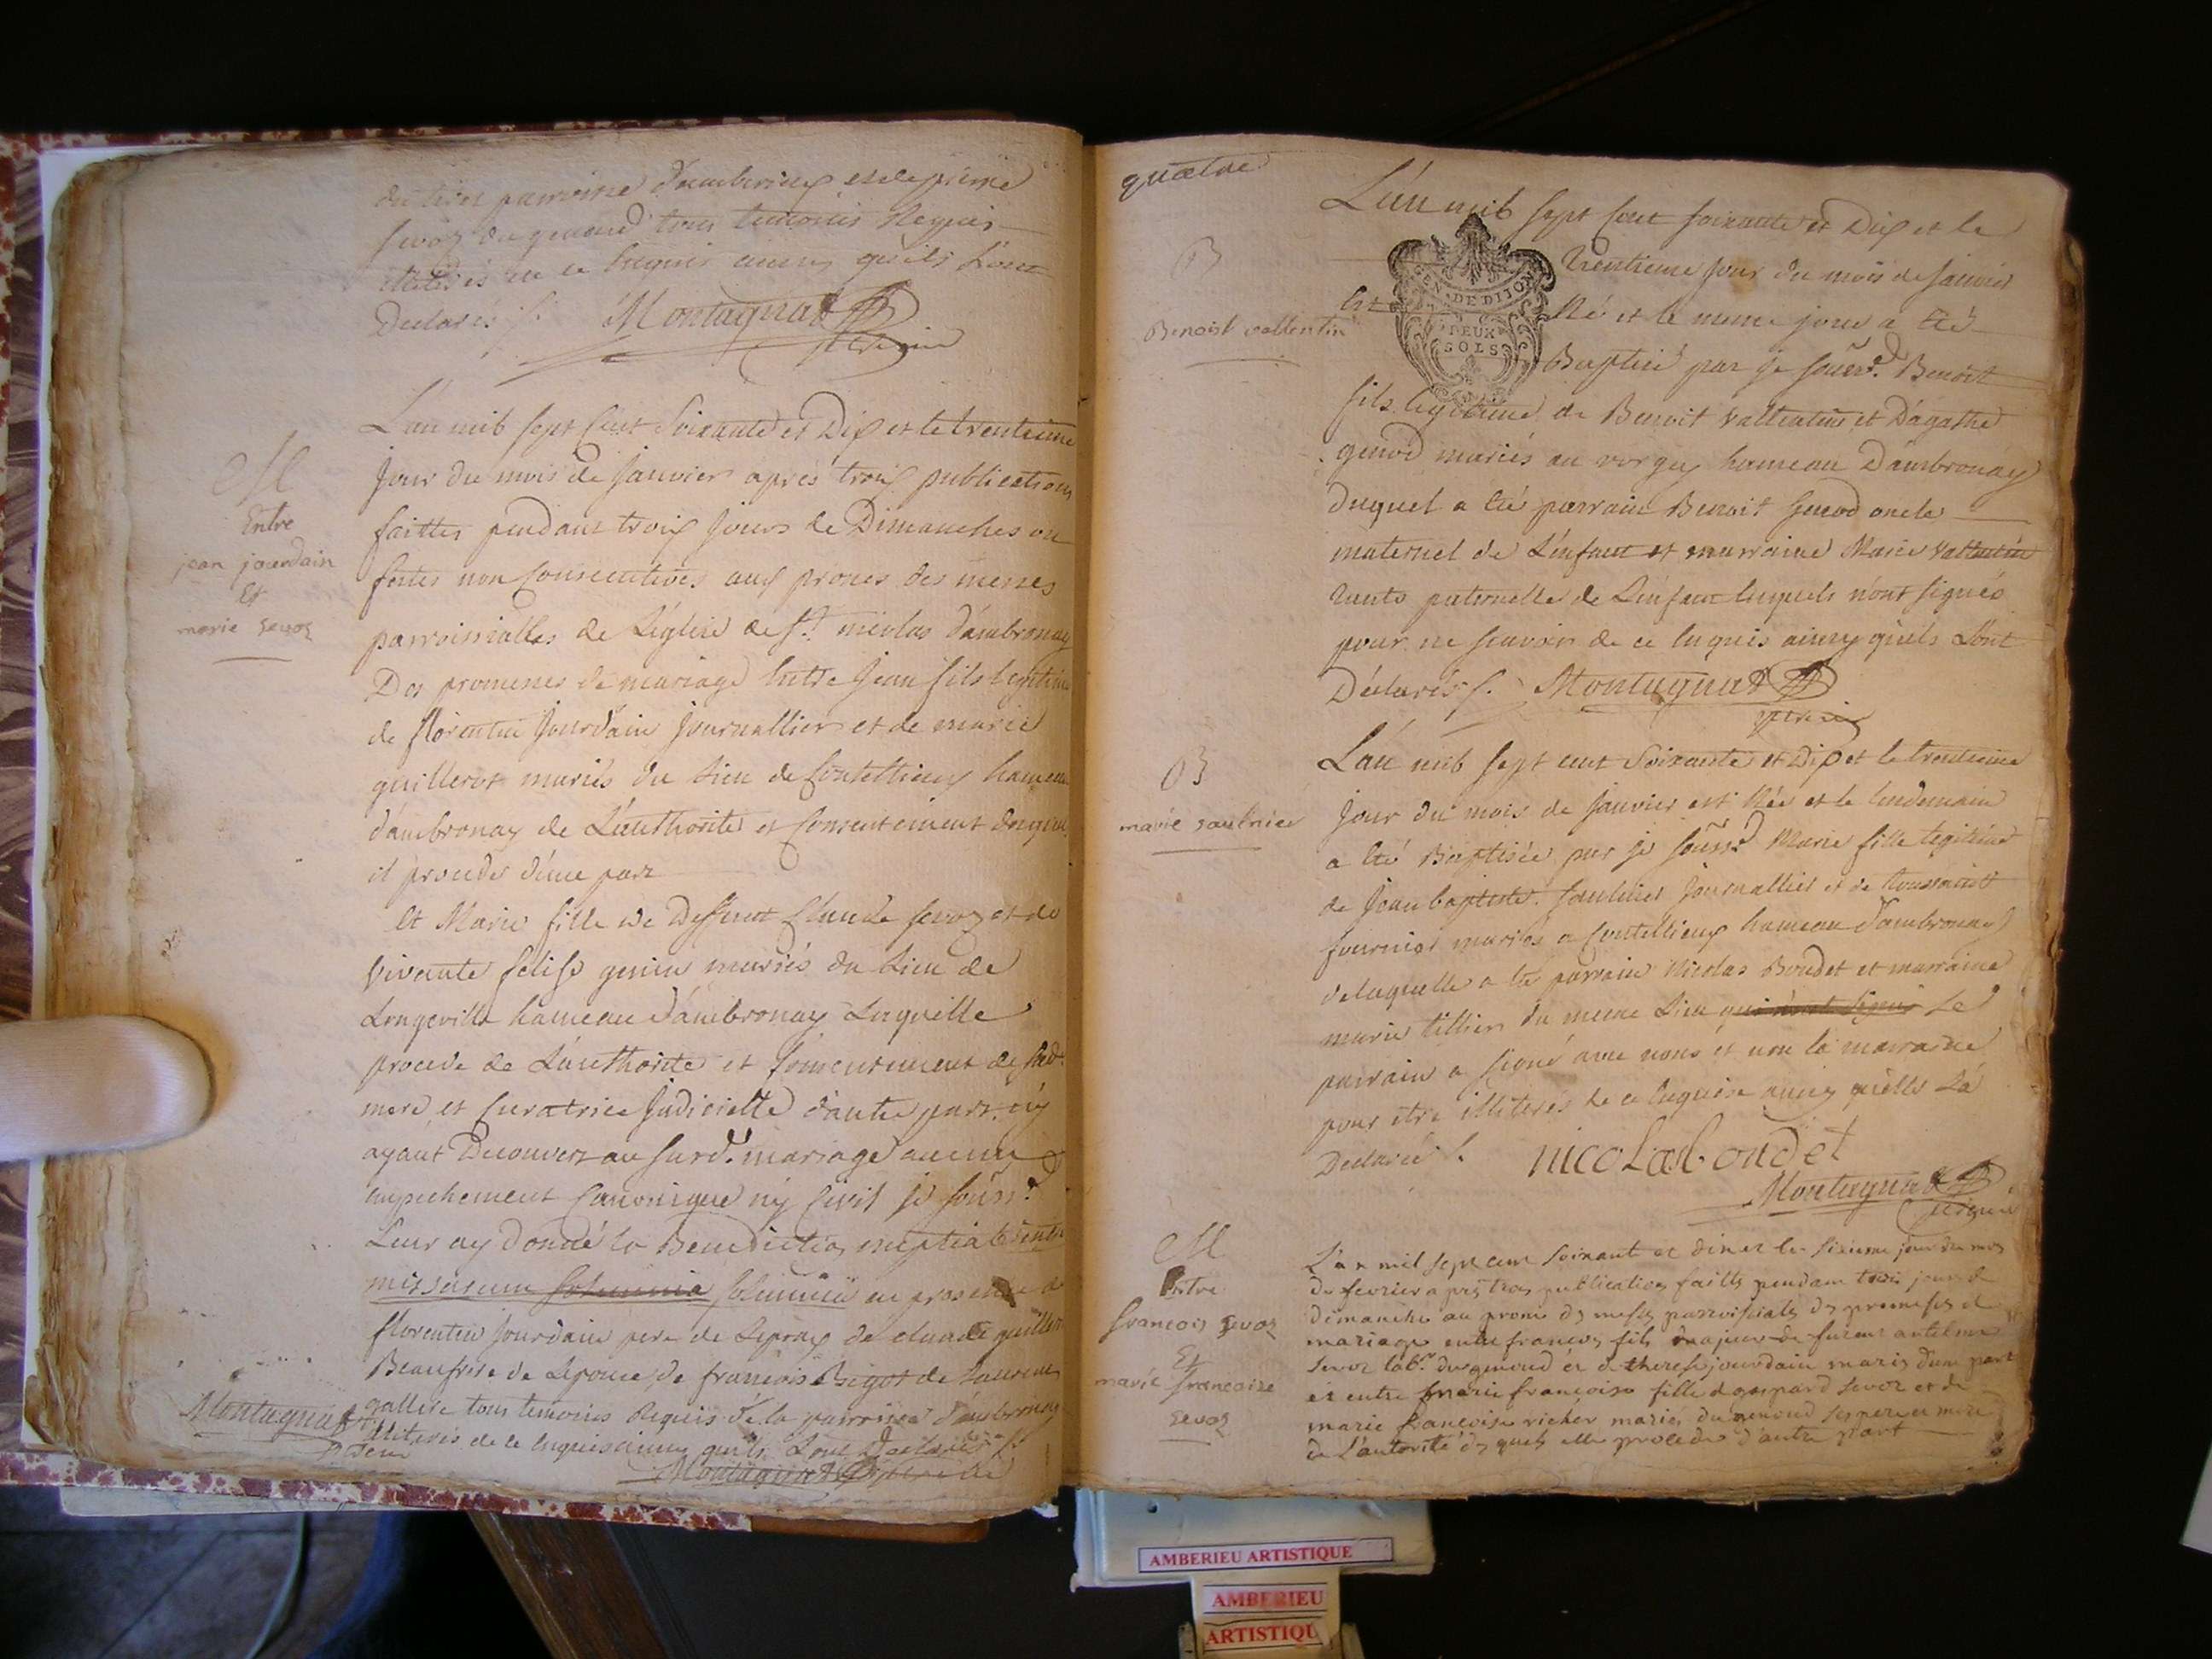 parroisse d'ambrieux
sevoz du genoud tous temoins Requis
illiterés de ce enquis ainsy qu'ils l'ont
Declarés /. Montagnat
M
Entre
jean jourdain
Et
marie sevoz
L'an mil sept Cent Soixante et Dix et le trentieme
jour du mois de janvier après trois publications
faittes pendant trois jours de Dimanches ou
festes non Consecutives aux prones des messes
parroissialles de L'eglise de St nicolas d'ambronay
Des promesses de mariage Entre jean fils legitime
de florentin jourdain journallier et de marie
guillerot mariés du Lieu de Coutellieux hameau
d'ambronay de L'authorité et Consentement desquels
il procede d'une part
Et Marie fille de Deffunt Claude sevoz et de
vivante felise genin mariés du Lieu de
Longeville hameau d'ambronay Laquelle
procede de L'authorité et Consentement de sad.
mere et Curatrice judicielle d'autre part n'y
ayant Decouvert au surd. mariage aucun
empechement Canonique ny Civil je souss.d
Leur ay donné la Benediction nuptiale intra
missarum solemnia solemnia en presence de
florentin jourdain pere de L'epoux de claude guillerot
Beaufrere de L'epouse, de francois Bigot de
gallire tous temoins Requis de la parroisse d'ambronay
illiterés de ce Enquis ainsy qu'ils L'ont Declarés /.
Montagnat
Montagnat
quatre
B
Benoist vallentin
L'an mil sept Cent soixante et Dix et le
trentieme jour du mois de janvier
Est Né et le meme jour a Eté
GEN. DE DIJON
DEUX
SOLS
Baptisé par je souss.d Benoit
fils legitime de Benoit Vallentin et D'agathe
genod mariés au vorgey hameau D'ambronay
duquel a Eté parrain Benoit genod oncle
maternel de L'enfant et marraine Marie Vallentin
tante paternelle de L'enfant lesquels n'ont signés
pour ne scavoir de ce Enquis ainsy qu'ils L'ont
Déclarés /. Montagnat
B
marie saulnier
L'an mil sept cent Soixante et Dix et le trentieme
jour du mois de janvier est Née et le lendemain
a Eté Baptisée par je souss.d Marie fille legitime
de jean baptiste saulnier journallier et de
fournier mariés a Coutellieux hameau d'ambronay
delaquelle a Eté parrain Nicolas Boudet et marraine
marie tillier du meme Lieu qui n'ont signés le
parrain a signé avec nous et non la marraine
pour etre illiterés de ce Enquise ainsy qu'elle L'a
Declarée /. nicolas boudet
Montagnat
M
Entre
francois sevoz
Et
marie francoise
sevoz
L'an mil sept cent soixante et dix et le sixieme jour du mois
de fevrier apres trois publications faittes pendant trois jours de
dimanche au prone des messes parroissiales des promesses de
mariage entre francois fils majeur de furent antelme
sevoz lab.r du genoud et de therese jourdain mariés d'une part
et entre marie francoise fille de gaspard sevoz et de
marie francoise richer mariés du genoud ses pere et mere
de L'autorité desquels elle procede d'autre part
AMBERIEU ARTISTIQUE
AMBERIEU
ARTISTIQU